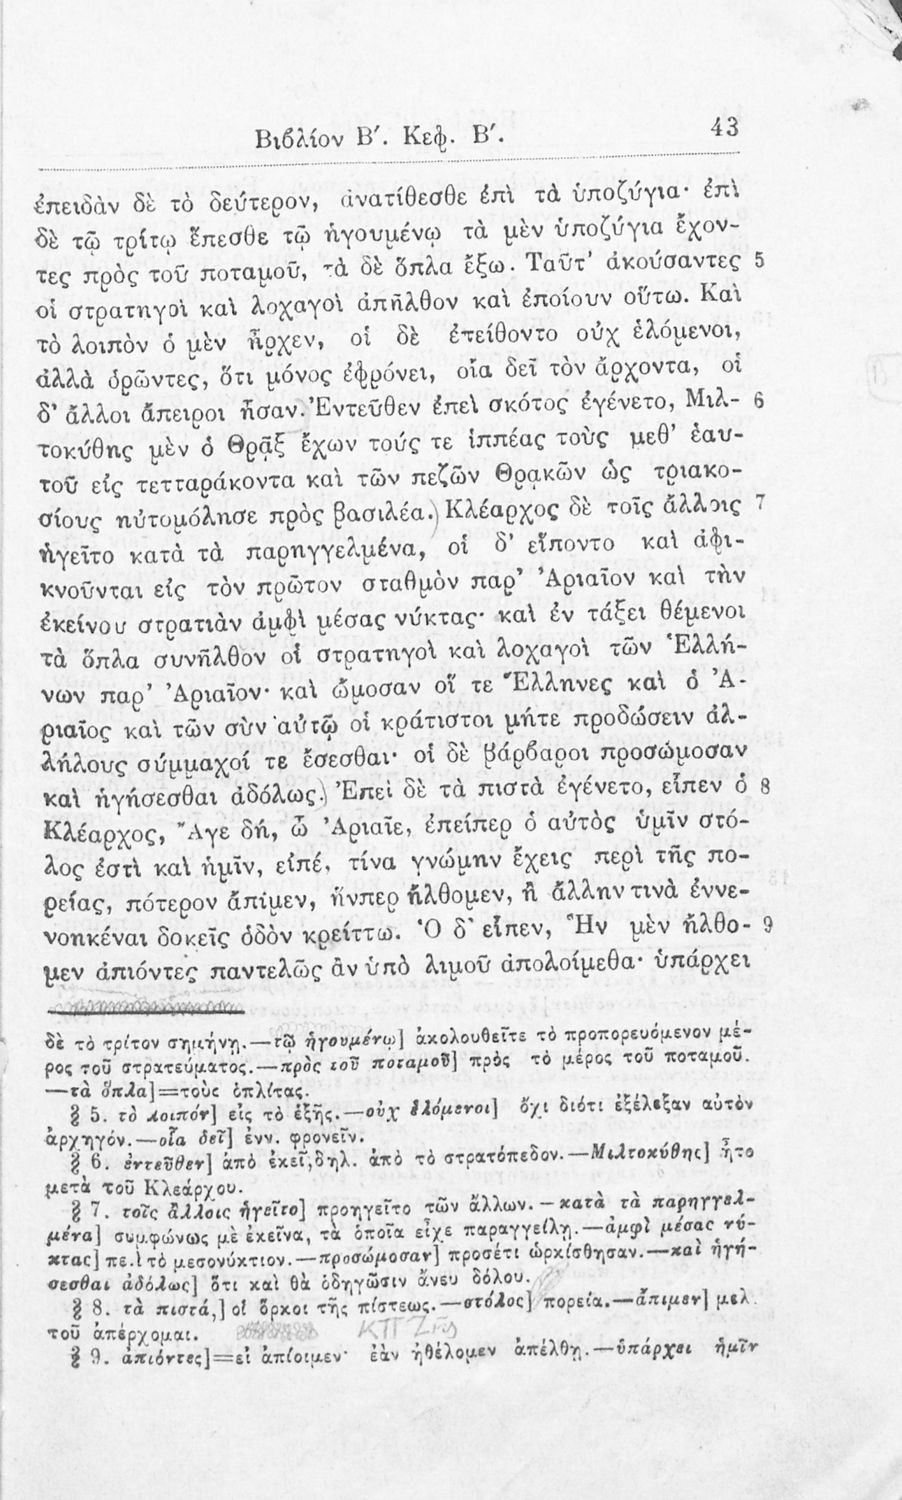 Βιβλίον Β′. Κεφ. Β′. 43
ἐπειδὰν δὲ τὸ δεύτερον, ἀνατίθεσθε ἐπὶ τὰ ὑποζύγια· ἐπὶ
δὲ τῷ τρίτῳ ἕπεσθε τῷ ἡγουμένῳ τὰ μὲν ὑποζύγια ἔχον-
τες πρὸς τοῦ ποταμοῦ, τὰ δὲ ὅπλα ἔξω. Ταῦτ’ ἀκούσαντες 5
οἱ στρατηγοὶ καὶ λοχαγοὶ ἀπῆλθον καὶ ἐποίουν οὕτω. Καὶ
τὸ λοιπὸν ὁ μὲν ἦρχεν, οἱ δὲ ἐπείθοντο οὐχ ἑλόμενοι,
ἀλλὰ ὁρῶντες, ὅτι μόνος ἐφρόνει, οἷα δεῖ τὸν ἄρχοντα, οἱ
δ’ ἄλλοι ἄπειροι ἦσαν. Ἐντεῦθεν ἐπεὶ σκότος ἐγένετο, Μιλ- 6
τοκύθης μὲν ὁ Θρᾷξ ἔχων τούς τε ἱππέας τοὺς μεθ’ ἑαυ-
τοῦ εἰς τετταράκοντα καὶ τῶν πεζῶν Θρᾳκῶν ὡς τριακο-
σίους ηὐτομόλησε πρὸς βασιλέα.) Κλέαρχος δὲ τοῖς ἄλλοις 7
ἡγεῖτο κατὰ τὰ παρηγγελμένα, οἱ δ’ εἵποντο καὶ ἀφι-
κνοῦνται εἰς τὸν πρῶτον σταθμὸν παρ’ Ἀριαῖον καὶ τὴν
ἐκείνου στρατιὰν ἀμφὶ μέσας νύκτας· καὶ ἐν τάξει θέμενοι
τὰ ὅπλα συνῆλθον οἱ στρατηγοὶ καὶ λοχαγοὶ τῶν Ἑλλή-
νων παρ’ Ἀριαῖον· καὶ ὤμοσαν οἵ τε Ἕλληνες καὶ ὁ Ἀ-
ριαῖος καὶ τῶν σὺν αὐτῷ οἱ κράτιστοι μήτε προδώσειν ἀλ-
λήλους σύμμαχοί τε ἔσεσθαι· οἱ δὲ βάρβαροι προσώμοσαν
καὶ ἡγήσεσθαι ἀδόλως.) Ἐπεὶ δὲ τὰ πιστὰ ἐγένετο, εἶπεν ὁ 8
Κλέαρχος, Ἄγε δή, ὦ Ἀριαῖε, ἐπείπερ ὁ αὐτὸς ὑμῖν στό-
λος ἐστὶ καὶ ἡμῖν, εἰπέ, τίνα γνώμην ἔχεις περὶ τῆς πο-
ρείας, πότερον ἄπιμεν, ἥνπερ ἤλθομεν, ἢ ἄλλην τινὰ ἐννε-
νοηκέναι δοκεῖς ὁδὸν κρείττω. Ὁ δ’ εἶπεν, Ἣν μὲν ἤλθο- 9
μεν ἀπιόντες παντελῶς ἂν ὑπὸ λιμοῦ ἀπολοίμεθα· ὑπάρχει
δὲ τὸ τρίτον σημήνῃ.—τῷ ἡγουμένῳ] ἀκολουθεῖτε τὸ προπορευόμενον μέ-
ρος τοῦ στρατεύματος.—πρὸς τοῦ ποταμοῦ] πρὸς τὸ μέρος τοῦ ποταμοῦ.
—τὰ ὅπλα]=τοὺς ὁπλίτας.
§ 5. τὸ λοιπόν] εἰς τὸ ἑξῆς.—οὐχ ἑλόμενοι] ὄχι διότι ἐξέλεξαν αὐτὸν
ἀρχηγόν.—οἷα δεῖ] ἐνν. φρονεῖν.
§ 6. ἐντεῦθεν] ἀπὸ ἐκεῖ, δηλ. ἀπὸ τὸ στρατόπεδον.—Μιλτοκύθης] ἦτο
μετὰ τοῦ Κλεάρχου.
§ 7. τοῖς ἄλλοις ἡγεῖτο] προηγεῖτο τῶν ἄλλων.—κατὰ τὰ παρηγγελ-
μένα] συμφώνως μὲ ἐκεῖνα, τὰ ὁποῖα εἶχε παραγγείλῃ.—ἀμφὶ μέσας νύ-
κτας] περὶ τὸ μεσονύκτιον.—προσώμοσαν] προσέτι ὡρκίσθησαν.—καὶ ἡγή-
σεσθαι ἀδόλως] ὅτι καὶ θὰ ὁδηγῶσιν ἄνευ δόλου.
§ 8. τὰ πιστά,] οἱ ὅρκοι τῆς πίστεως.—στόλος] πορεία.—ἄπιμεν] μελ.
τοῦ ἀπέρχομαι.
§ 9. ἀπιόντες]=εἰ ἀπίοιμεν· ἐὰν ἠθέλομεν ἀπέλθῃ.—ὑπάρχει ἡμῖν